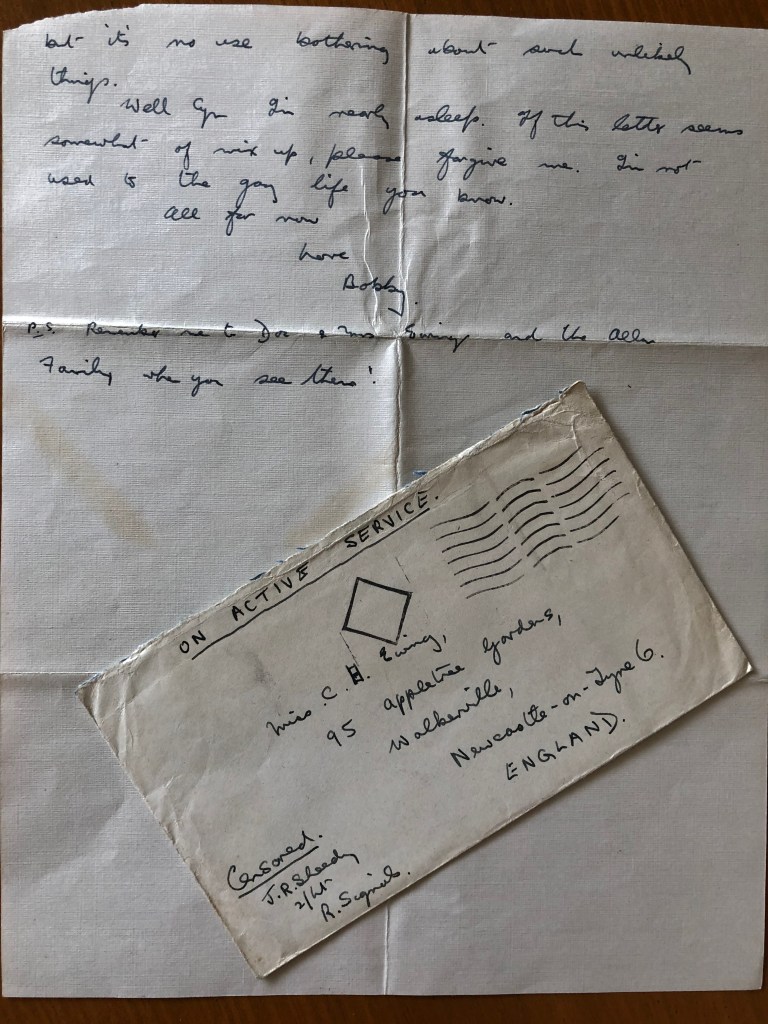 but it's no use bothering about such unlikely
things.
Well Cyn I'm nearly asleep. If this letter seems
somewhat of mix up, please forgive me. I'm not
used to the gay life you know.
All for now
Love
Bobby.
P.S. Remember me to Doc & Mrs Ewing and the Allen
Family when you see them!
ON ACTIVE SERVICE.
Miss. C. H. Ewing,
95 Appletree Gardens,
Walkerville,
Newcastle-on-Tyne 6.
ENGLAND.
Censored.
2/Lt
R. Signals.